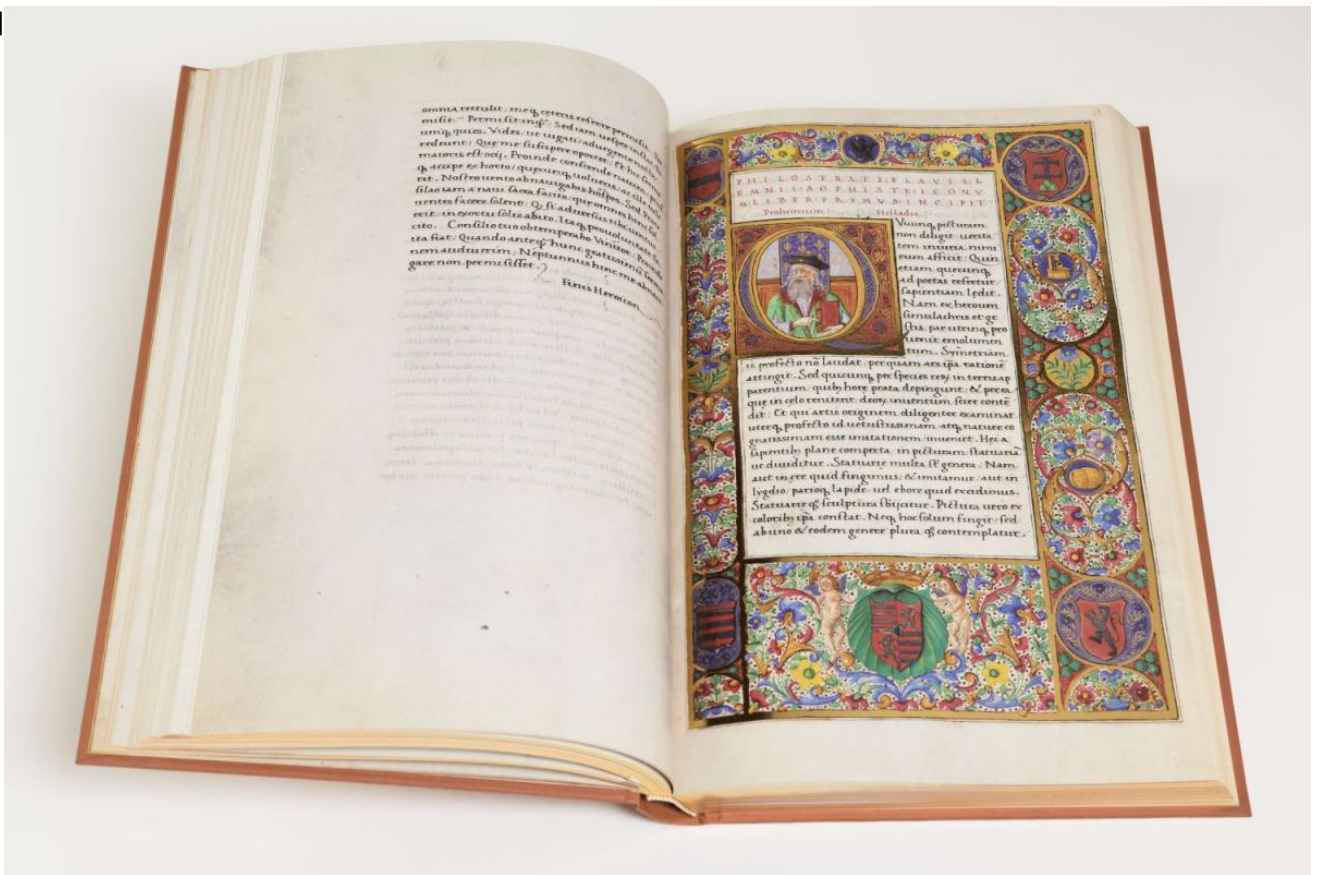 omnia rettulit. meq; ceteris referre permisit.
misit. Permisit inq;. Sed iam uesper
umq; quies. Vides. ut uigati
redeunt: Que me suscipere oportet. Et
maioris est ocij. Proinde conscende nauem
q; accipe ex horto quecunq; uolueris. ac ille
rit. Nostro uento ab nauigabis hospes. Sed
silao tam a naui sacra facito. que omnes hinc
uentes facere solent: Q; si aduersus tibi uentus
erit in exortu solis abito. Itaq; pro uoluntate
cito. Consilio tuo obtemperabo Vinitor:
ita fiat. Quando anteq; hunc gratissimū
nem audiuerim. Neptunnus hinc me
gare non permisisset.
Finis Heroicon
PHILOSTRATI FLAVII L
EMNII SOPHISTE ICONV
M LIBER PREMVS INCIPIT
Prohemium Helladia
QVicunq; picturam
non diligit: uerita
tem iniuria nimi
rum afficit: Quin
etiam quecunq;
ad poetas refertur
sapientiam ledit.
Nam ex heroum
simulachris et ge
stis. par utrinq; pro
uenit emolumen
tum. Sỹmetriam
is profecto nō laudat: per quam ars ipa rationē
attingit. Sed quicunq; per species reꝝ in terris ap
parentium: quibꝫ hore prata depingunt: & perea
que in celo renitent: deoꝝ inuentum. scire conte
dit: Et qui artis originem diligenter examinat
uterq; profecto id uetustissimam atq; nature co
gnatissimam esse imitationem inueniet. Hec a
sapientibꝫ plane comperta: in picturam statuariā
ue diuiditur. Statuarie multa st̄ genera: Nam
aut in ęre quid fingimus: & imitamur: aut in
lygdio. parioq; lapide uel ebore quid excidimus.
Statuarie q; sculptura sbijcitur. Pictura uero ex
coloribꝫ ipa constat. Neq; hoc solum fingit: sed
ab uno & eodem genere plura q; contemplatur.